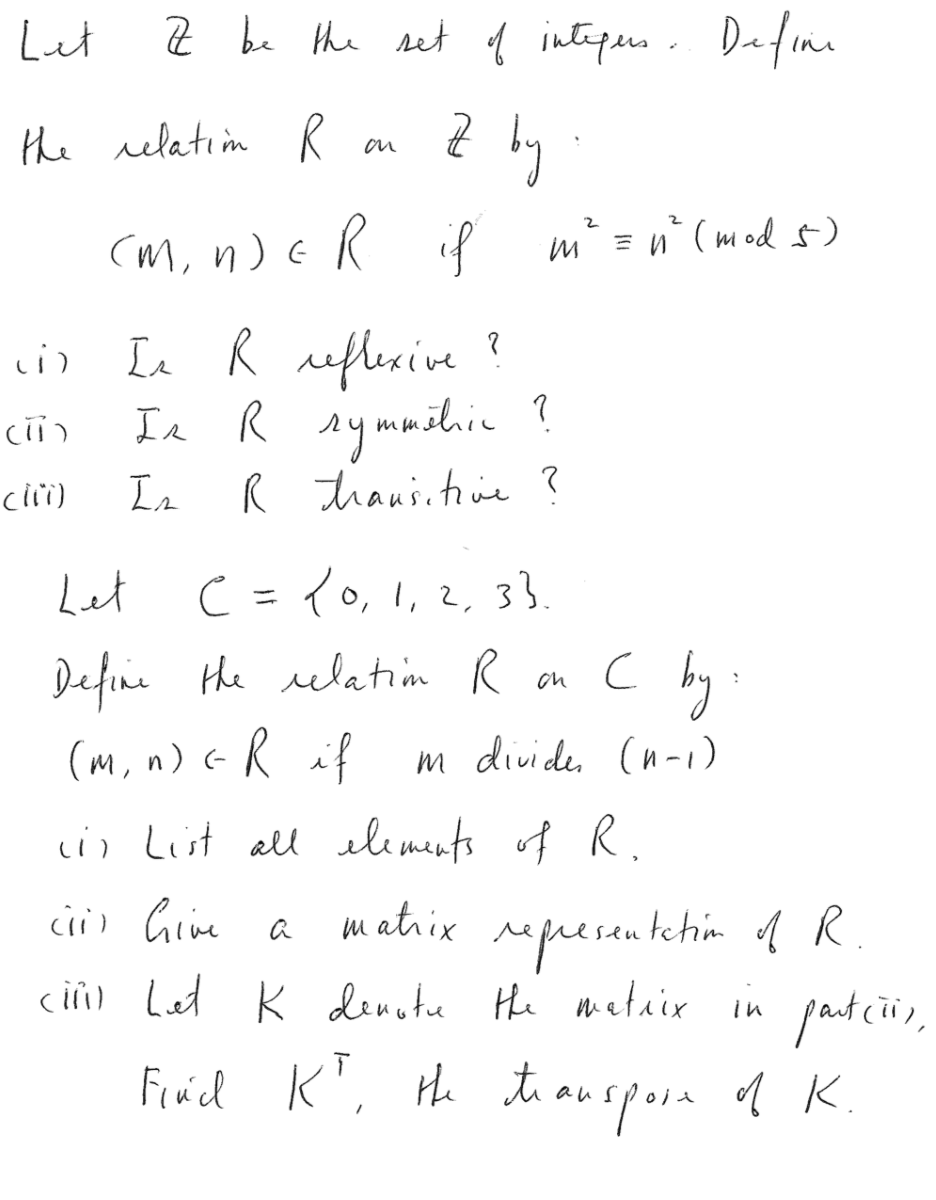 Let ℤ be the set of integers. Define
the relation R on ℤ by:
(m, n) ∈ R if m² ≡ n² (mod 5)
(i) Is R reflexive?
(ii) Is R symmetric?
(iii) Is R transitive?
Let C = {0, 1, 2, 3}.
Define the relation R on C by:
(m, n) ∈ R if m divides (n-1)
(i) List all elements of R.
(ii) Give a matrix representation of R.
(iii) Let K denote the matrix in part (ii),
Find Kᵀ, the transpose of K.